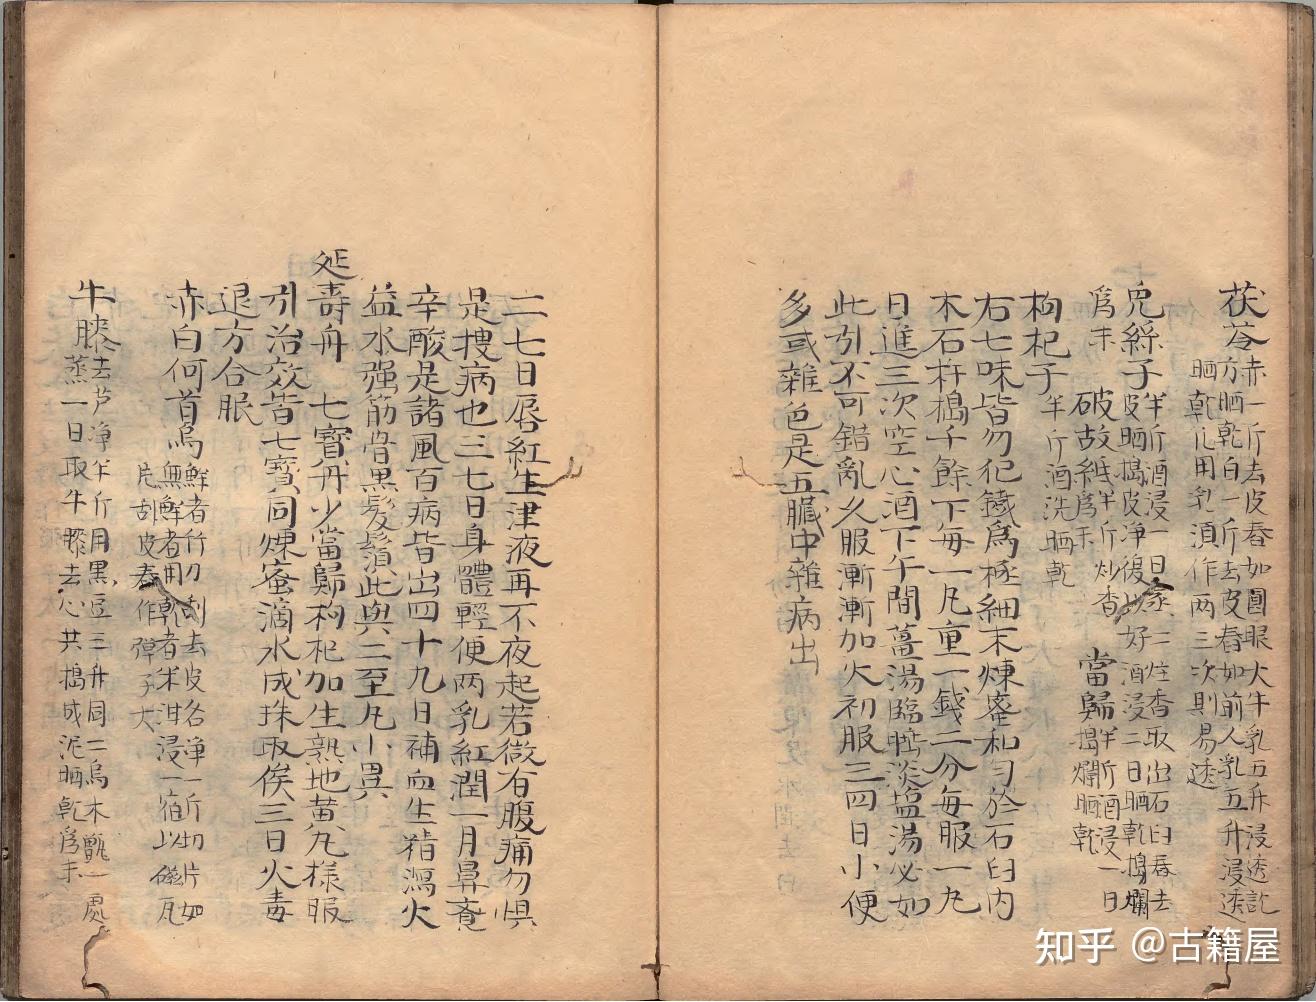 茯苓赤一斤去皮舂如圓眼大牛乳五升浸透訖
方晒乾白一斤去皮舂如前人乳五升浸透
晒乾凡用乳須作两三次則易透
兎絲子半斤酒浸一日家二炷香取出石臼舂去
皮晒搗皮净復以好酒浸二日晒乾搗爛
爲末 破故紙半斤炒香爲末 當歸半斤酒浸一日搗爛晒乾
枸杞子半斤酒洗晒乾
右七味皆勿犯鐵爲極細末煉蜜和勻於石臼内
木石杵搗千餘下每一凡重一錢二分每服一丸
日進三次空心酒下午間薑湯臨臥淡塩湯必如
此引不可錯亂久服漸漸加大初服三四日小便
多或雜色是五臟中雜病出
二七日唇紅生津液再不夜起若微有腹痛勿惧
是搜病也三七日身體輕便两乳紅潤一月鼻
辛酸是諸風百病皆出四十九日補血生精瀉火
益水强筋骨黑髮鬚此與二至丸小異
延壽丹 七寳丹少當歸枸杞加生熟地黄丸様服
引治效皆七寳同煉蜜滴水成珠取俟三日火毒
退方合眠
赤白何首烏鮮者竹刀刮去皮各净一斤切片如
無鮮者用乾者米泔浸一宿以磁瓦
片刮皮舂作彈子大
牛膝去芦净半斤用黒豆三升同二烏木甑一處
蒸一日取牛膝去心共搗成泥晒乾爲末
知乎 @古籍屋